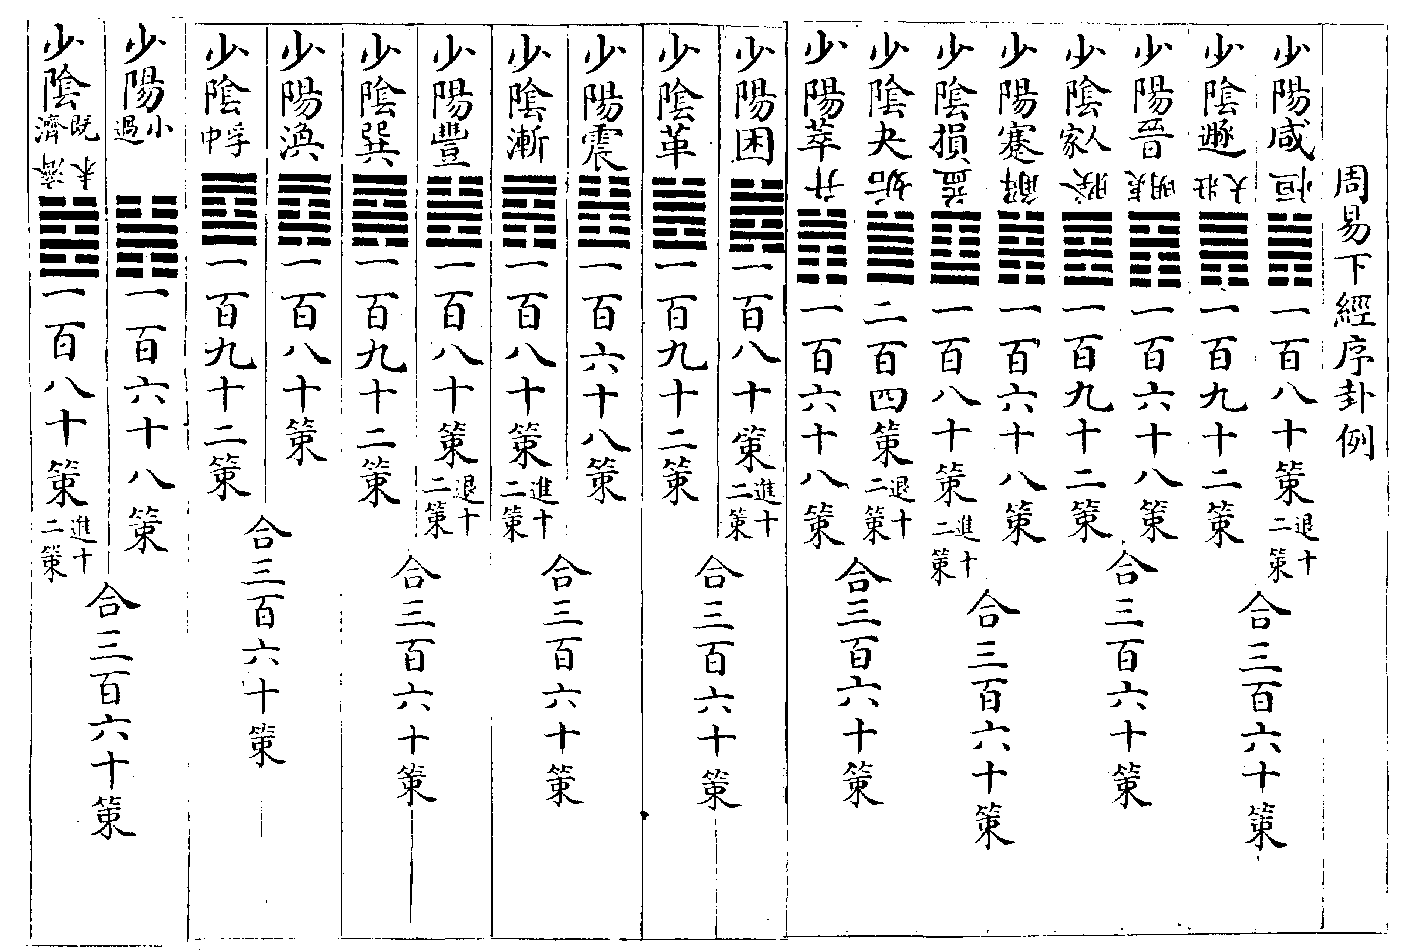 周易下經序卦例
少陽咸恒一百八十策退十二策
少陰遯大壯一百九十二策
合三百六十策
少陽晉明夷一百六十八策
少陰家人睽一百九十二策
合三百六十策
少陽蹇解一百六十八策
少陰損益一百八十策進十二策
合三百六十策
少陰夬姤二百四策退十二策
少陽萃升一百六十八策
合三百六十策
少陽困一百八十策進十二策
少陰革一百九十二策
合三百六十策
少陽震一百六十八策
少陰漸一百八十策進十二策
合三百六十策
少陽豐一百八十策退十二策
少陰巽一百九十二策
合三百六十策
少陽渙一百八十策
少陰中孚一百九十二策
合三百六十策
少陽小過一百六十八策
少陰既濟未濟一百八十策進十二策
合三百六十策